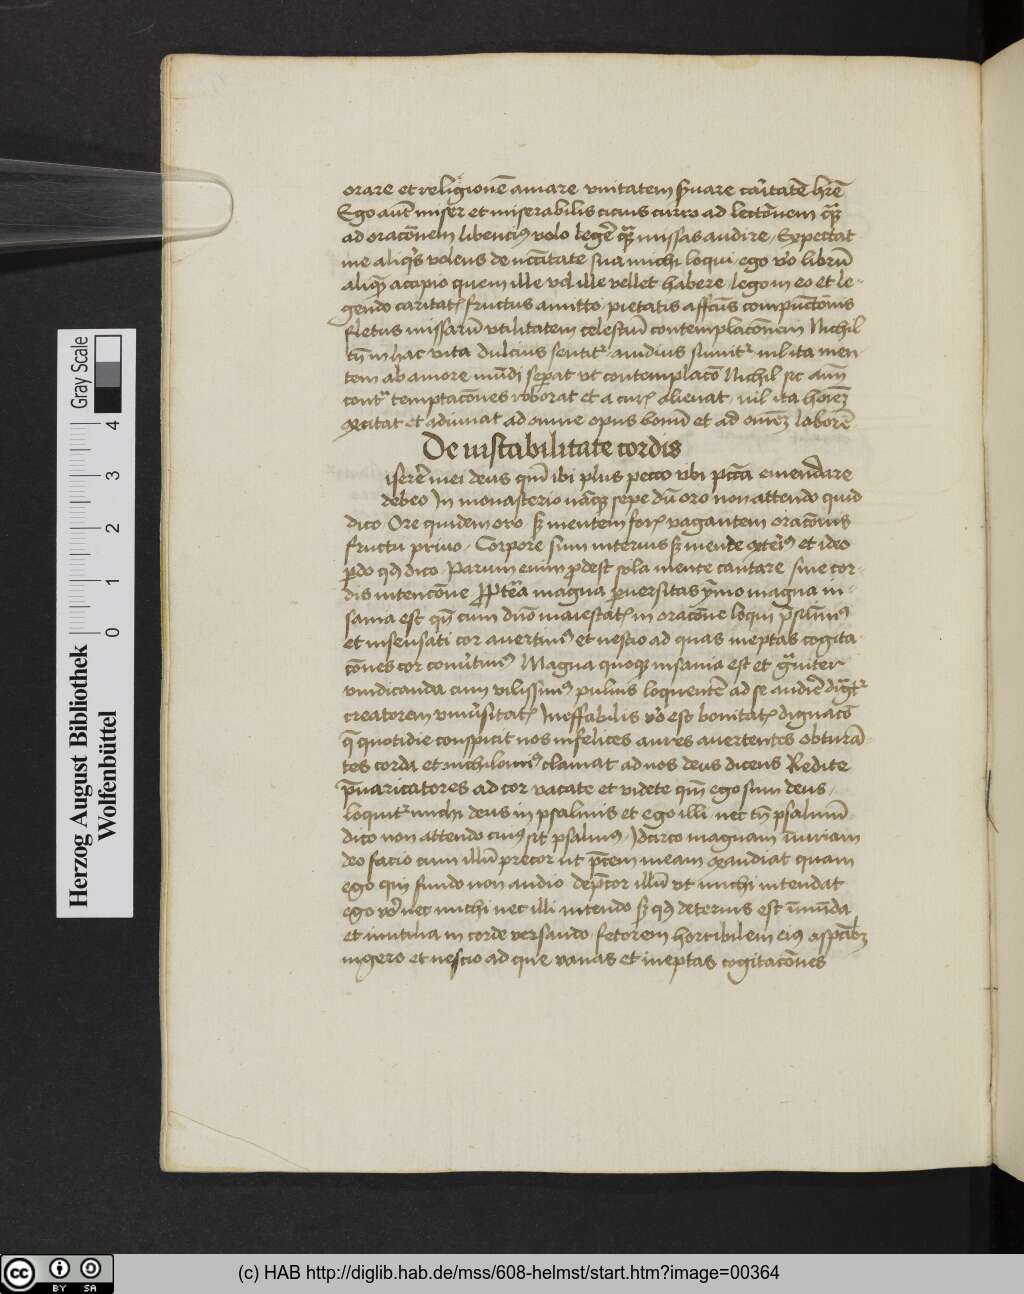 orare et religionē amare vnitatem s̄uare caritatē hr̄e
Ego aūt miser et miserabilis cicius curro ad lectōnem qͣꝫ
ad oracōnem libencius volo legē qͣꝫ missas audire / Expectat
me aliqͥs volens de necc̄itate sua michi loqui / ego vo librū
aliqͣ accipio quem ille vel ille vellet habere / lego in eo et le-
gendo caritatꝭ fructus amitto pietatis affc̄us compūctōnis
fletus missarū vtilitatem celestiū contemplacōnem Nichil
tn̄ in hac vita dulcius sentitꝛ auidius sumitꝛ nil ita men
tem ab amore mūdi sepat vt contemplacō Nichil sic aīm
contͣ temptacōnes roborat et a curꝭ alienat / nil ita hoīeꝫ
excitat et adiuuat ad omne opus bonū et ad omēꝫ laborē
De instabilitate cordis
iserē mei deus qm̄ ibi plus pecco vbi pc̄ta emendare
debeo In monasterio nāqꝫ sepe dū oro non attendo quid
dico Ore quidem oro sꝫ mentem forꝭ vagantem oracōnis
fructu priuo / Corpore sum interius sꝫ mente exterius et ideo
ꝑdo qd dico Parum enim ꝓdest sola mente cantare sine cor-
dis intencōne ꝓpterea magna ꝑuersitas ymo magna in-
sania est qn̄ cum dūo maiestatꝭ in oracōne loqui p̄sumimus
et insensati cor auertimus et nescio ad quas ineptas cogita
cōnes cor conuertimus Magna quoqꝫ insania est et gͣuiter
vindicanda cum vilissimus puluis loquentē ad se audire dignatꝛ
creatorem vniuersitatꝭ Ineffabilis vo est bonitatꝭ dignacō
q̄ quotidie conspicit nos infelices aures auertentes obturā-
tes corda et nichilominus clamat ad nos deus dicens Redite
p̄uaricatores ad cor vacate et videte qm̄ ego sum deus /
loquitꝛ michi deus in psalmis et ego illi nec tn̄ psalmū
dico non attendo cuius sit psalmus / Idcirco magnam iniuriam
deo facio cum illū precor ut p̄cem meam exaudiat quam
ego qui fundo non audio dep̄cor illū vt michi intendat
ego vo nec michi nec illi intendo sꝫ qd deterius est īmūda
et inutilia in corde versando / fetorem horribilem eius aspctibꝫ
ingero et nescio ad que vanas et ineptas cogitacōnes
Herzog August Bibliothek
Wolfenbüttel
Gray Scale
0 1 2 3 4
(c) HAB http://diglib.hab.de/mss/608-helmst/start.htm?image=00364
cc BY SA